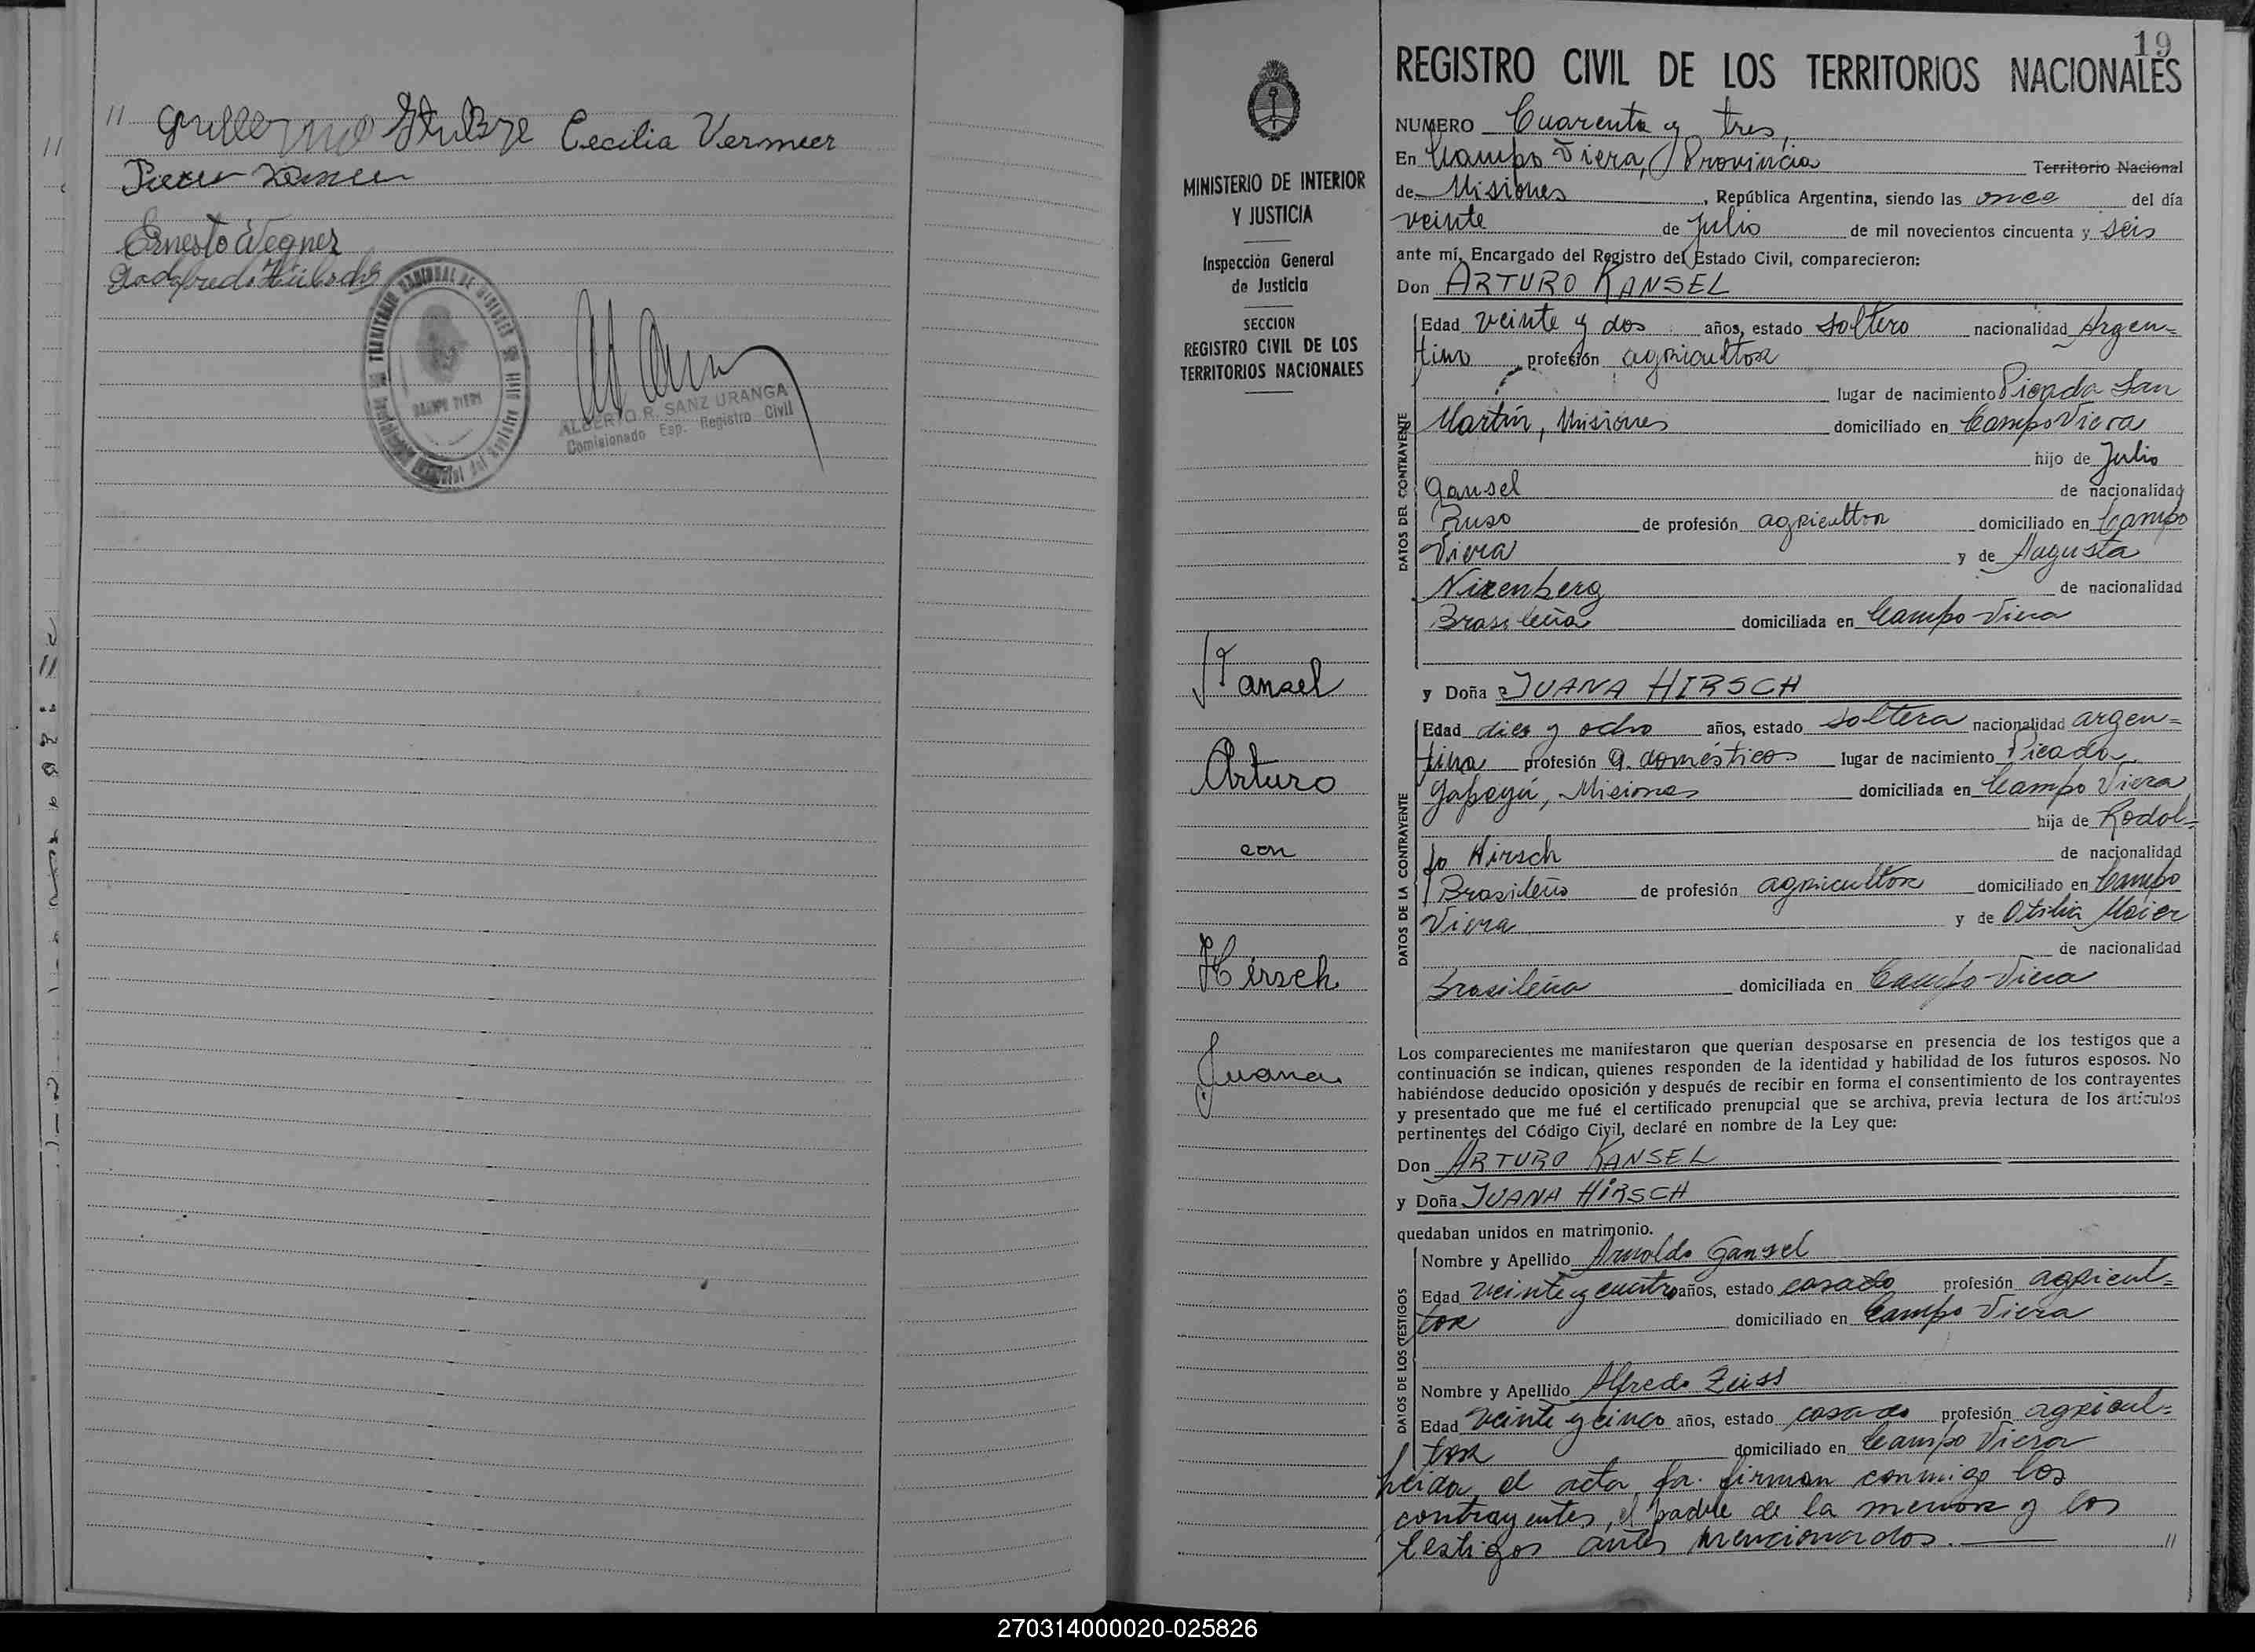 " Guillermo Stubze Cecilia Vermeer
Pieter
Ernesto Wegner
Godofredo
ALBERTO R. SANZ URANGA
Comisionado Esp. Registro Civil
MINISTERIO DE INTERIOR
Y JUSTICIA
Inspección General
de Justicia
SECCION
REGISTRO CIVIL DE LOS
TERRITORIOS NACIONALES
Arturo
con
Hirsch
Juana
19
REGISTRO CIVIL DE LOS TERRITORIOS NACIONALES
NUMERO Cuarenta y tres,
En Campo Viera, Provincia Territorio Nacional
de Misiones, República Argentina, siendo las once del día
veinte de Julio de mil novecientos cincuenta y seis
ante mí, Encargado del Registro del Estado Civil, comparecieron:
Don ARTURO KANSEL
DATOS DEL CONTRAYENTE
Edad veinte y dos años, estado soltero nacionalidad Argen=
tino profesión agricultor
lugar de nacimiento Picada San
Martín, Misiones domiciliado en Campo Viera
hijo de Julio
Gansel de nacionalidad
Ruso de profesión agricultor domiciliado en Campo
Viera y de Augusta
Nirenberg de nacionalidad
Brasileña domiciliada en Campo Viera
y Doña JUANA HIRSCH
DATOS DE LA CONTRAYENTE
Edad diez y ocho años, estado soltera nacionalidad argen=
tina profesión q. domésticos lugar de nacimiento Picada
Yapeyú, Misiones domiciliada en Campo Viera
hija de Rodol=
fo Hirsch de nacionalidad
Brasileño de profesión agricultor domiciliado en Campo
Viera y de Otilia Maier
de nacionalidad
Brasileña domiciliada en Campo Viera
Los comparecientes me manifestaron que querían desposarse en presencia de los testigos que a
continuación se indican, quienes responden de la identidad y habilidad de los futuros esposos. No
habiéndose deducido oposición y después de recibir en forma el consentimiento de los contrayentes
y presentado que me fué el certificado prenupcial que se archiva, previa lectura de los artículos
pertinentes del Código Civil, declaré en nombre de la Ley que:
Don ARTURO KANSEL
y Doña JUANA HIRSCH
quedaban unidos en matrimonio.
DATOS DE LOS TESTIGOS
Nombre y Apellido Arnoldo Gansel
Edad veinte y cuatro años, estado casado profesión agricul=
tor domiciliado en Campo Viera
Nombre y Apellido Alfredo Zeiss
Edad veinte y cinco años, estado casado profesión agricul=
tor domiciliado en Campo Viera
Leida el acta, la firman conmigo los
contrayentes, el padre de la menor y los
testigos antes mencionados. "
270314000020-025826